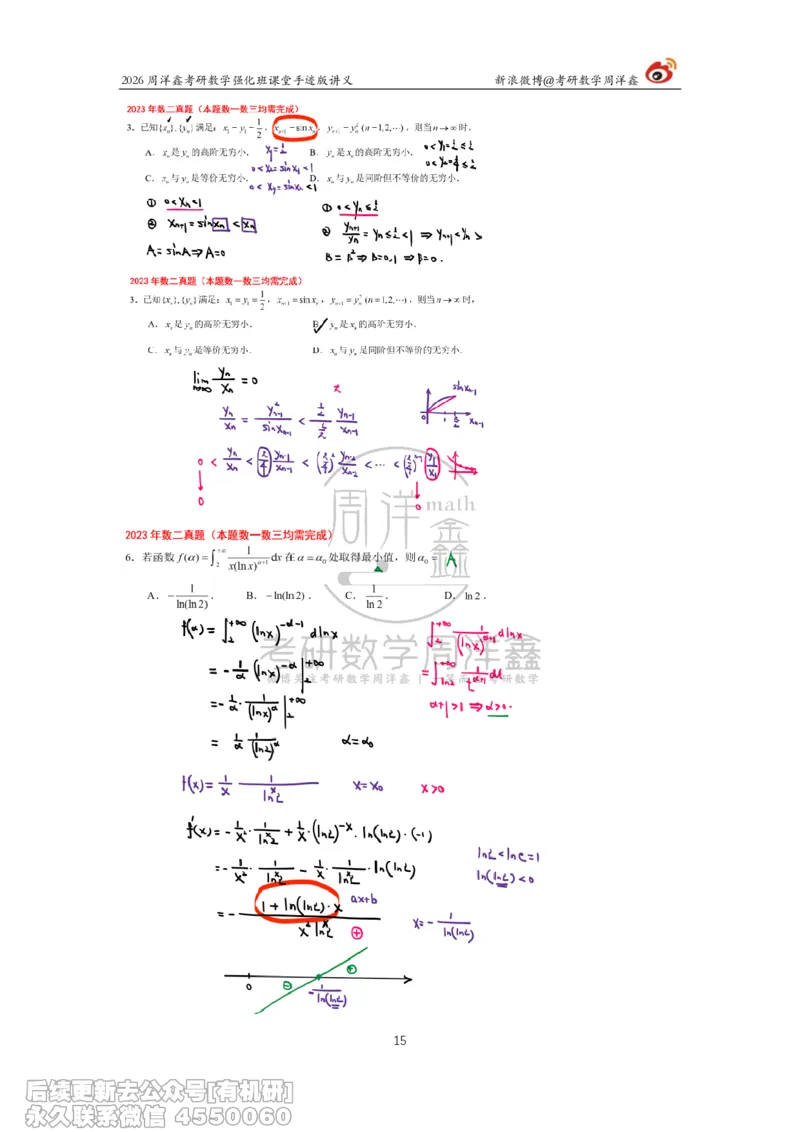 2026 周洋鑫考研数学强化班课堂手迹版讲义 新浪微博@考研数学周洋鑫
2023 年数二真题（本题数一数三均需完成）
3. 已知{xₙ},{yₙ}满足：x₁=y₁=1/2，xₙ₊₁=sin xₙ，yₙ₊₁=yₙ²(n=1,2,⋯)，则当n→∞时，
A. xₙ是yₙ的高阶无穷小. B. yₙ是xₙ的高阶无穷小.
C. xₙ与yₙ是等价无穷小. D. xₙ与yₙ是同阶但不等价的无穷小.
x₁=1/2
0<x₂=sinx₁<1
0<x₃=sinx₂<1
0<y₁=1/2≤1/2
① 0<xₙ<1
② xₙ₊₁=sinxₙ<xₙ
A=sinA⇒A=0
① 0<yₙ≤1/2
② yₙ₊₁/yₙ=yₙ≤1/2<1 ⇒ yₙ₊₁<yₙ
B=B²⇒B=0,1⇒B=0.
2023 年数二真题（本题数一数三均需完成）
3. 已知{xₙ},{yₙ}满足：x₁=y₁=1/2，xₙ₊₁=sin xₙ，yₙ₊₁=yₙ²(n=1,2,⋯)，则当n→∞时，
A. xₙ是yₙ的高阶无穷小. B. yₙ是xₙ的高阶无穷小.
C. xₙ与yₙ是等价无穷小. D. xₙ与yₙ是同阶但不等价的无穷小.
lim n→∞ yₙ/xₙ=0
sinxₙ₋₁
0 1 π/2 xₙ₋₁
yₙ/xₙ = yₙ₋₁²/sinxₙ₋₁ < (1/2)/(2/π) yₙ₋₁/xₙ₋₁
0 < yₙ/xₙ < π/4 yₙ₋₁/xₙ₋₁ < (π/4)² yₙ₋₂/xₙ₋₂ < ⋯ < (π/4)ⁿ⁻¹ y₁/x₁
0 0
周洋鑫 math
2023 年数二真题（本题数一数三均需完成）
6. 若函数 f(α)=∫₂^{+∞} 1/(x(ln x)^{α+1}) dx 在α=α₀处取得最小值，则α₀= A
A. −1/ln(ln2). B. −ln(ln2). C. 1/ln2. D. ln2.
f(α)=∫₂^{+∞}(lnx)^{-α-1} dlnx
=-1/α (lnx)^{-α}|₂^{+∞}
=-1/α·1/(lnx)^α|₂^{+∞}
=1/α 1/(ln2)^α α=α₀
∫₂^{+∞} 1/(lnx)^{α+1} dlnx
=∫_{ln2}^{+∞} 1/t^{α+1} dt
α+1>1⇒α>0.
考研数学周洋鑫
f(x)=1/x 1/lnˣ2 x=x₀ x>0
f'(x)=-1/x²·1/lnˣ2+1/x·(ln2)^{-x}·ln(ln2)·(-1)
=-1/x²·1/lnˣ2-1/x·1/lnˣ2·ln(ln2)
ln2<lne=1
ln(ln2)<0
=-(1+ln(ln2)·x)/(x²lnˣ2) ax+b ⊕
x=-1/ln(ln2)
0 ⊖ -1/ln(ln2) ⊕
15
后续更新去公众号[有机研]
永久联系微信 4550060